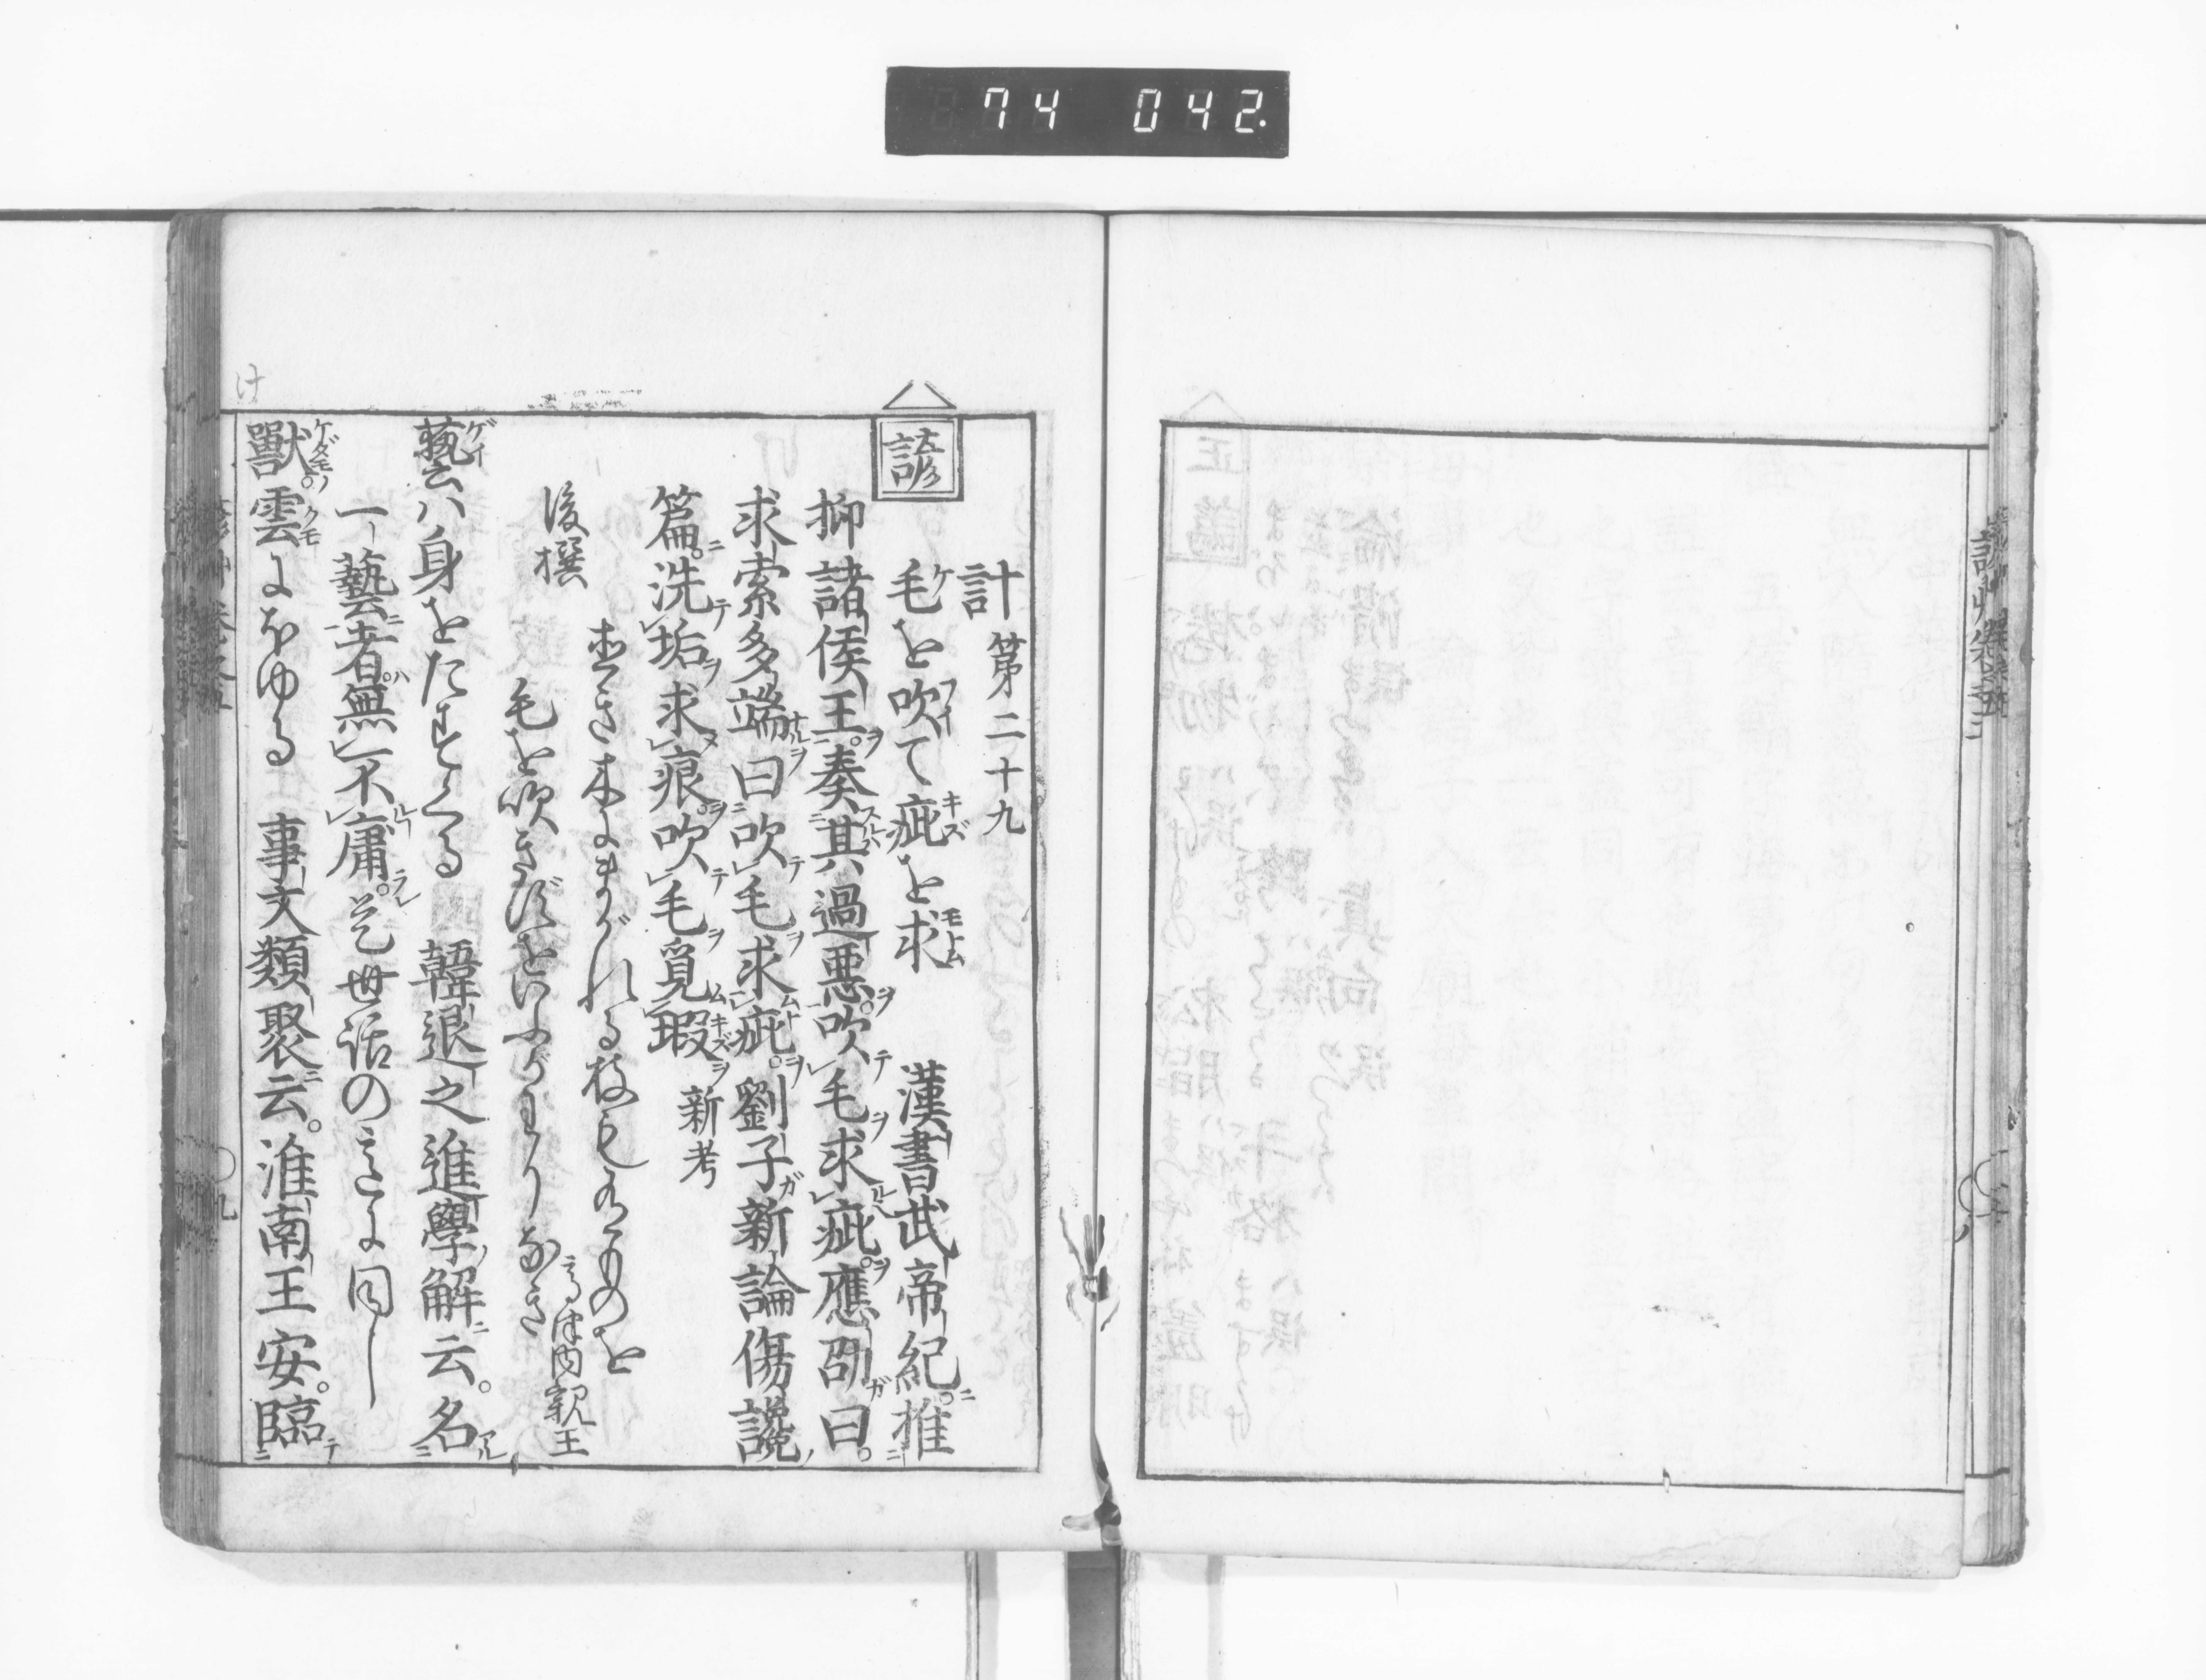 74 042.
計第二十九
諺
毛を吹て疵を求 漢書武帝紀推
抑諸侯王奏其過悪吹毛求疵應劭曰
求索多端曰吹毛求疵劉子新論傷讒
篇洗垢求痕吹毛覓瑕 新考
後撰
なをき木にまがれる枝もある物を
毛を吹きずをいふがわりなき 高津内親王
藝ハ身をたすくる 韓退之進學解云名
一藝者無不庸是世話の意に同し
獸雲にほゆる 事文類聚云淮南王安臨
け